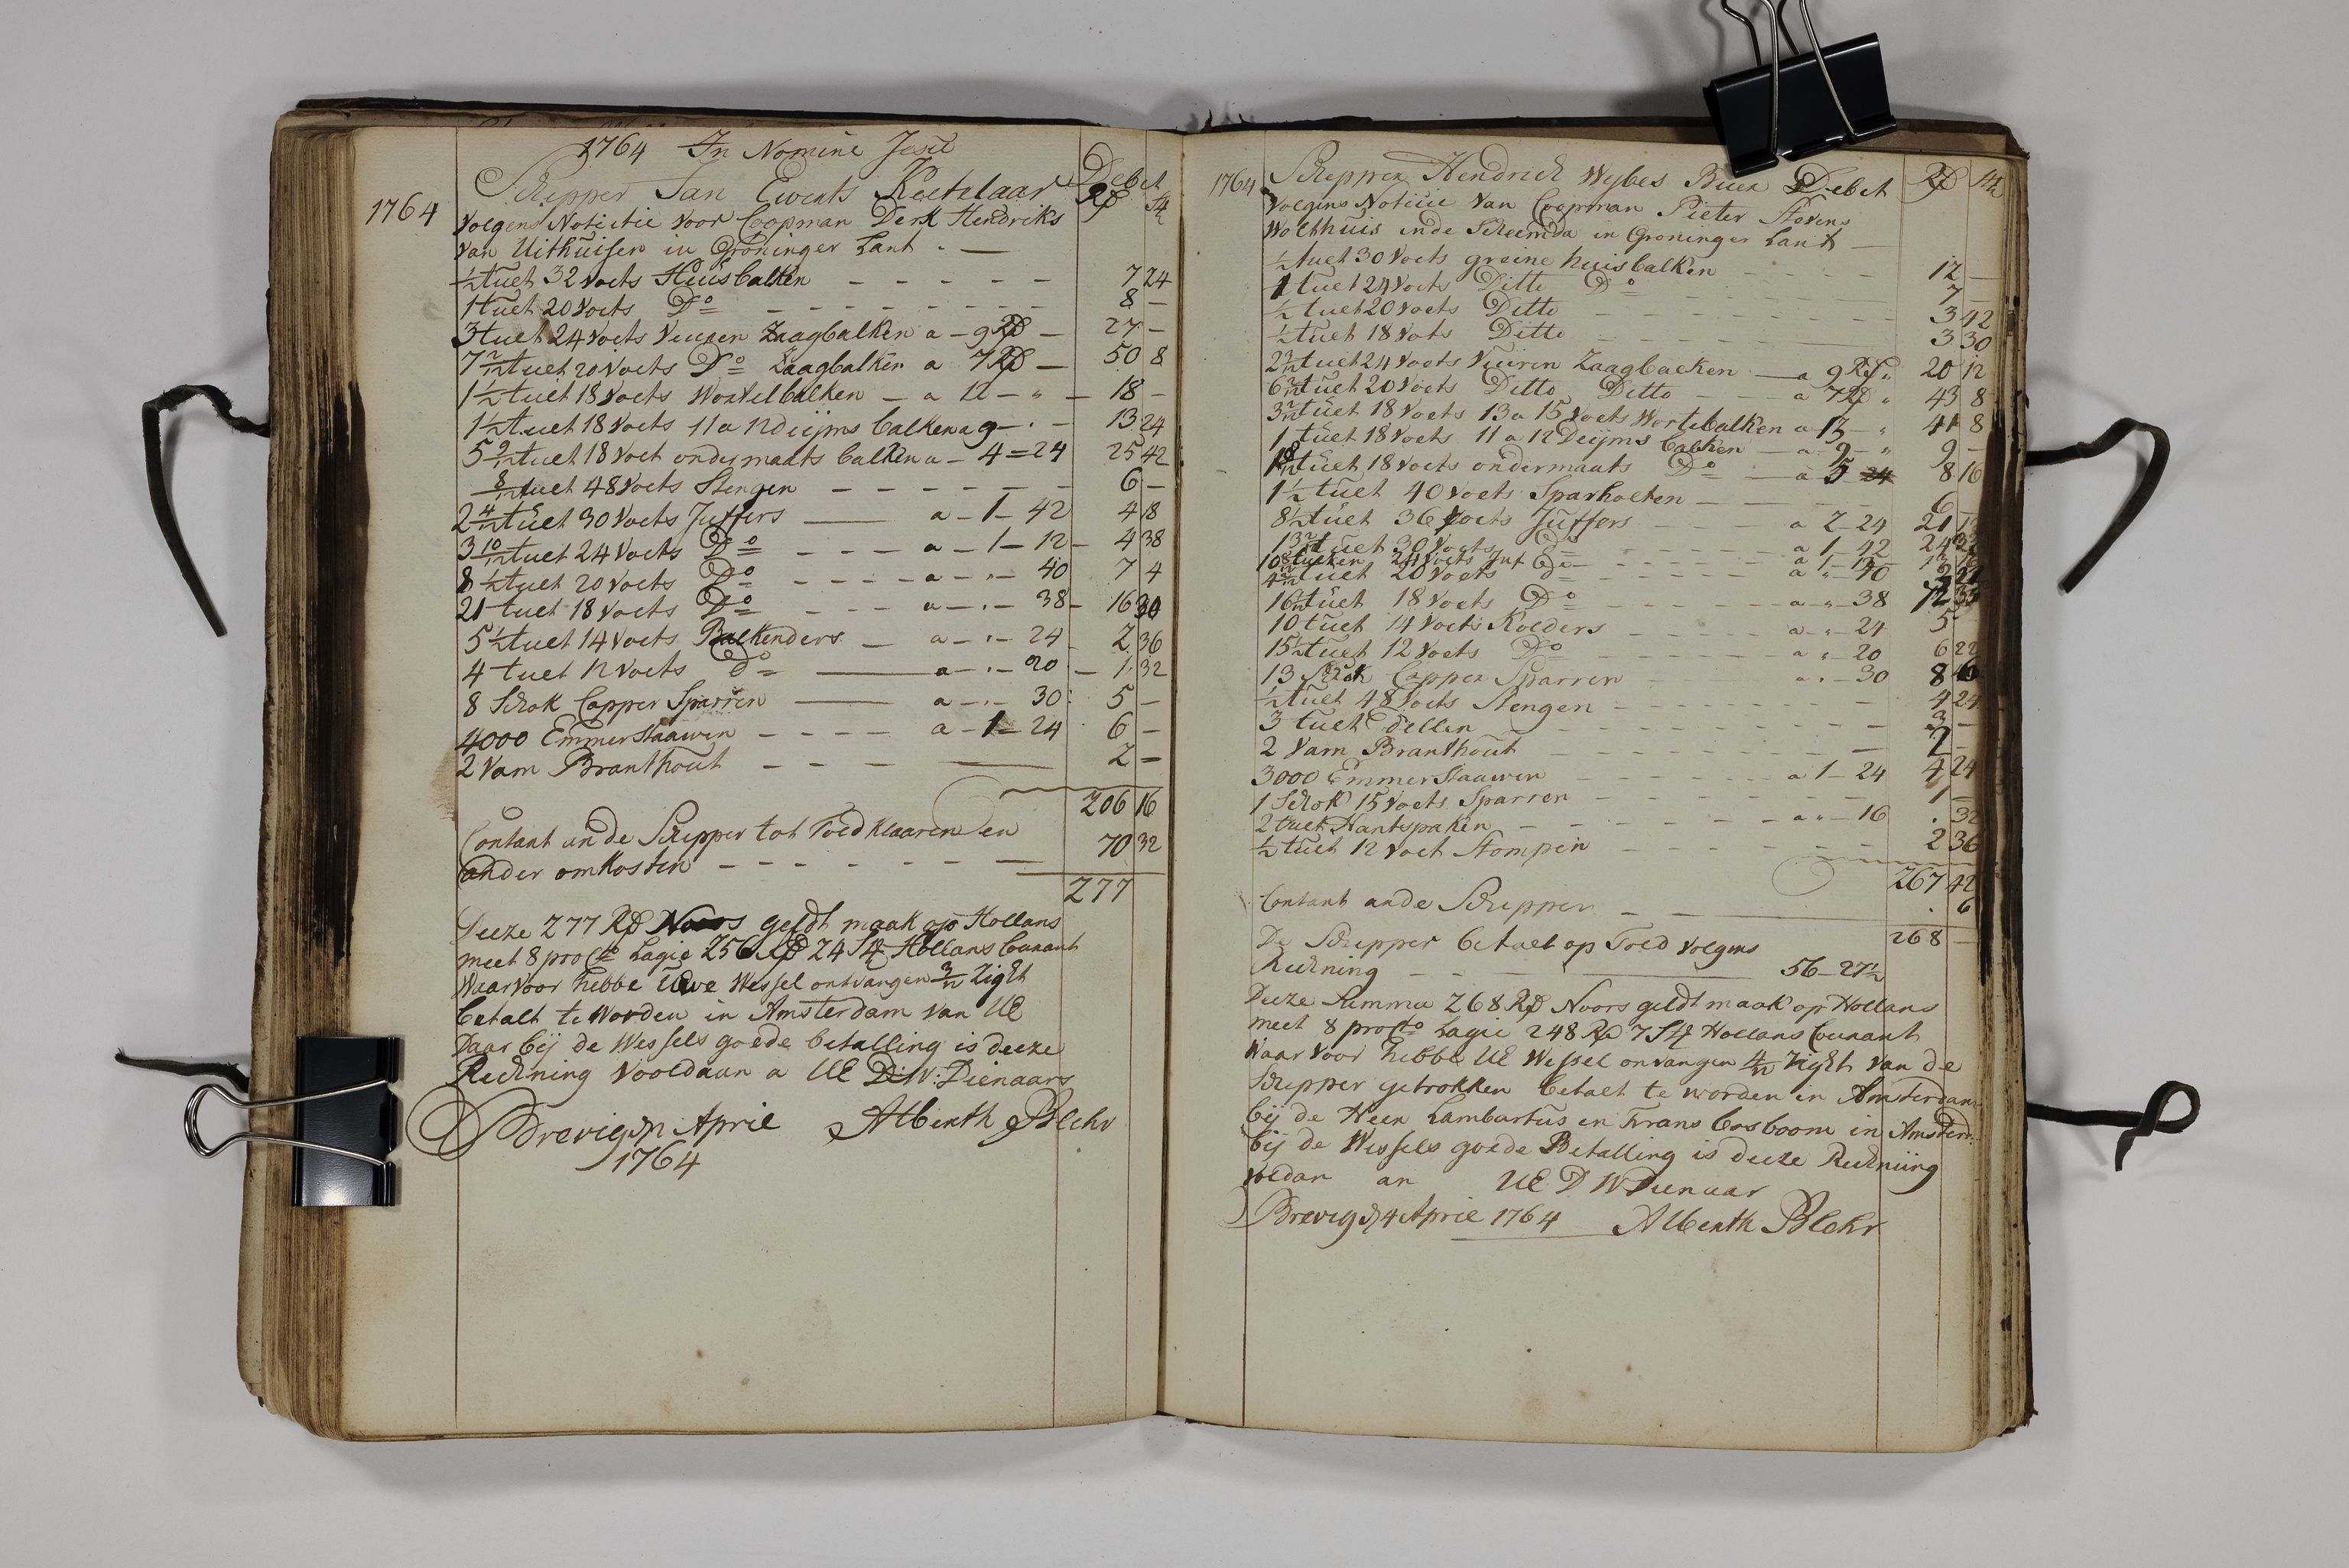 1764 In Nomine Jesu
Schipper Jan Everts Ketelaar Debet
1764 Rd St
Volgens Notietie Voor Coopman Derk Hendriks
Van Uithuisen in Groninger Lant
½ tuet 32 Voets Huisbalken 7 24
1 tuet 20 Voets Do 8 —
3 tuet 24 Voets Veuren Zaagbalken a 9 Rd 27 —
7 2/12 tuet 20 Voets Do Zaagbalken a 7 Rd 50 8
1½ tuet 18 Voets Wortelbalken a 12 18 —
1½ tuet 18 Voets 11 a 12 diijms balken a 9 13 24
5 9/12 tuet 18 Voet ondermaats balken a 4 = 24 25 42
8/12 tuet 48 Voets Stengen 6 —
2 4/12 tuet 30 Voets Juffers a 1 42 4 18
3 10/12 tuet 24 Voets Do a 1 12 4 38
8½ tuet 20 Voets Do a 40 7 4
21 tuet 18 Voets Do a 38 16 30
5½ tuet 14 Voets a 24 2 36
4 tuet 12 Voets do a 20 1 32
8 Schok Capper Sparren a 30 5 —
4000 Emmerstaaven a 1 24 6 —
2 Vam Branthout 2 —
206 16
Contant an de Schipper tot Toed Klaaren en
ander omkosten 70 32
277
Deeze 277 Rd Noors geldt maak op Hollans
meet 8 pro Cto Lagie 256 Rd 24 St Hollans Courant
Waar Voor hebbe Uwe Wessel ontvangen 3/m Zight
betalt te Worden in Amsterdam Van UE
Daar bij de Wessels goede betalling is deeze
Rechning Vooldaan a UE D:W: Dienaars
Brevig April Albenth Blehr
1764
1764 Schipper Hendrich Wybes Buer Debet Rd St
Volgens Notiiie Van Coopman Pieter Stevens
Wolthuis inde Scheemda in Groninger Lant
½ tuet 30 Voets greine huisbalken 12 —
1 tuet 24 Voets Ditto Do 7 —
½ tuet 20 Voets Ditto 3 42
½ tuet 18 Voets Ditto 3 30
2 3/12 tuet 24 Voets Veuren Zaagbalken a 9 Rd 20 12
6 2/12 tuet 20 Voets Ditto Ditto a 7 Rd 43 8
3 2/12 tuet 18 Voets 13 a 15 Voets Wortelbalken a 13 41 8
1 tuet 18 Voets 11 a 12 Deijms balken a 9 9 —
tuet 18 Voets ondermaats Do a 5 24 8 16
1½ tuet 40 Voets Sparholten 6 —
8½ tuet 36 Voets Juffers a 2 24 21
tuet 30 Voets Do a 1 42 24
tuet 24 Voets Juf Do a 1 12
tuet 20 Voets do a 40
tuet 18 Voets Do a 38 12
10 tuet 14 Voets Kolders a 24 5
15½ tuet 12 Voets Do a 20 6 22
13 Schok Capper Sparren a 30 8
½ tuet 48 Voets Stengen 4 24
3 tuet dellen 3 —
2 Vam Branthout 2 —
3000 Emmerstaaven a 1 24 4 24
1 Schok 15 Voets Sparren 1 —
2 tuet Hantspaken a 16 . 32
½ tuet 12 Voet Stompen 2 36
267 42
Contant an de Schipper . 6
268 —
De Schipper betaelt op Toed Volgens
Rechning 56 27½
Deeze Summa 268 Rd Noors geldt maak op Hollans
meet 8 pro Cto Lagie 248 Rd 7 St Hollans Courant
Waar Voor hebbe UE Wessel onvangen 4/m Zight Van de
Schipper getrokken betalt te worden in Amsterdam
bij de Heer Lambartus en Frans Cosboom in Amsterd:
bij de Wessels goede Betalling is deeze Rechniing
Voldan an UE D W Dienaar
Brevig d 4 April 1764 Albenth Blehr